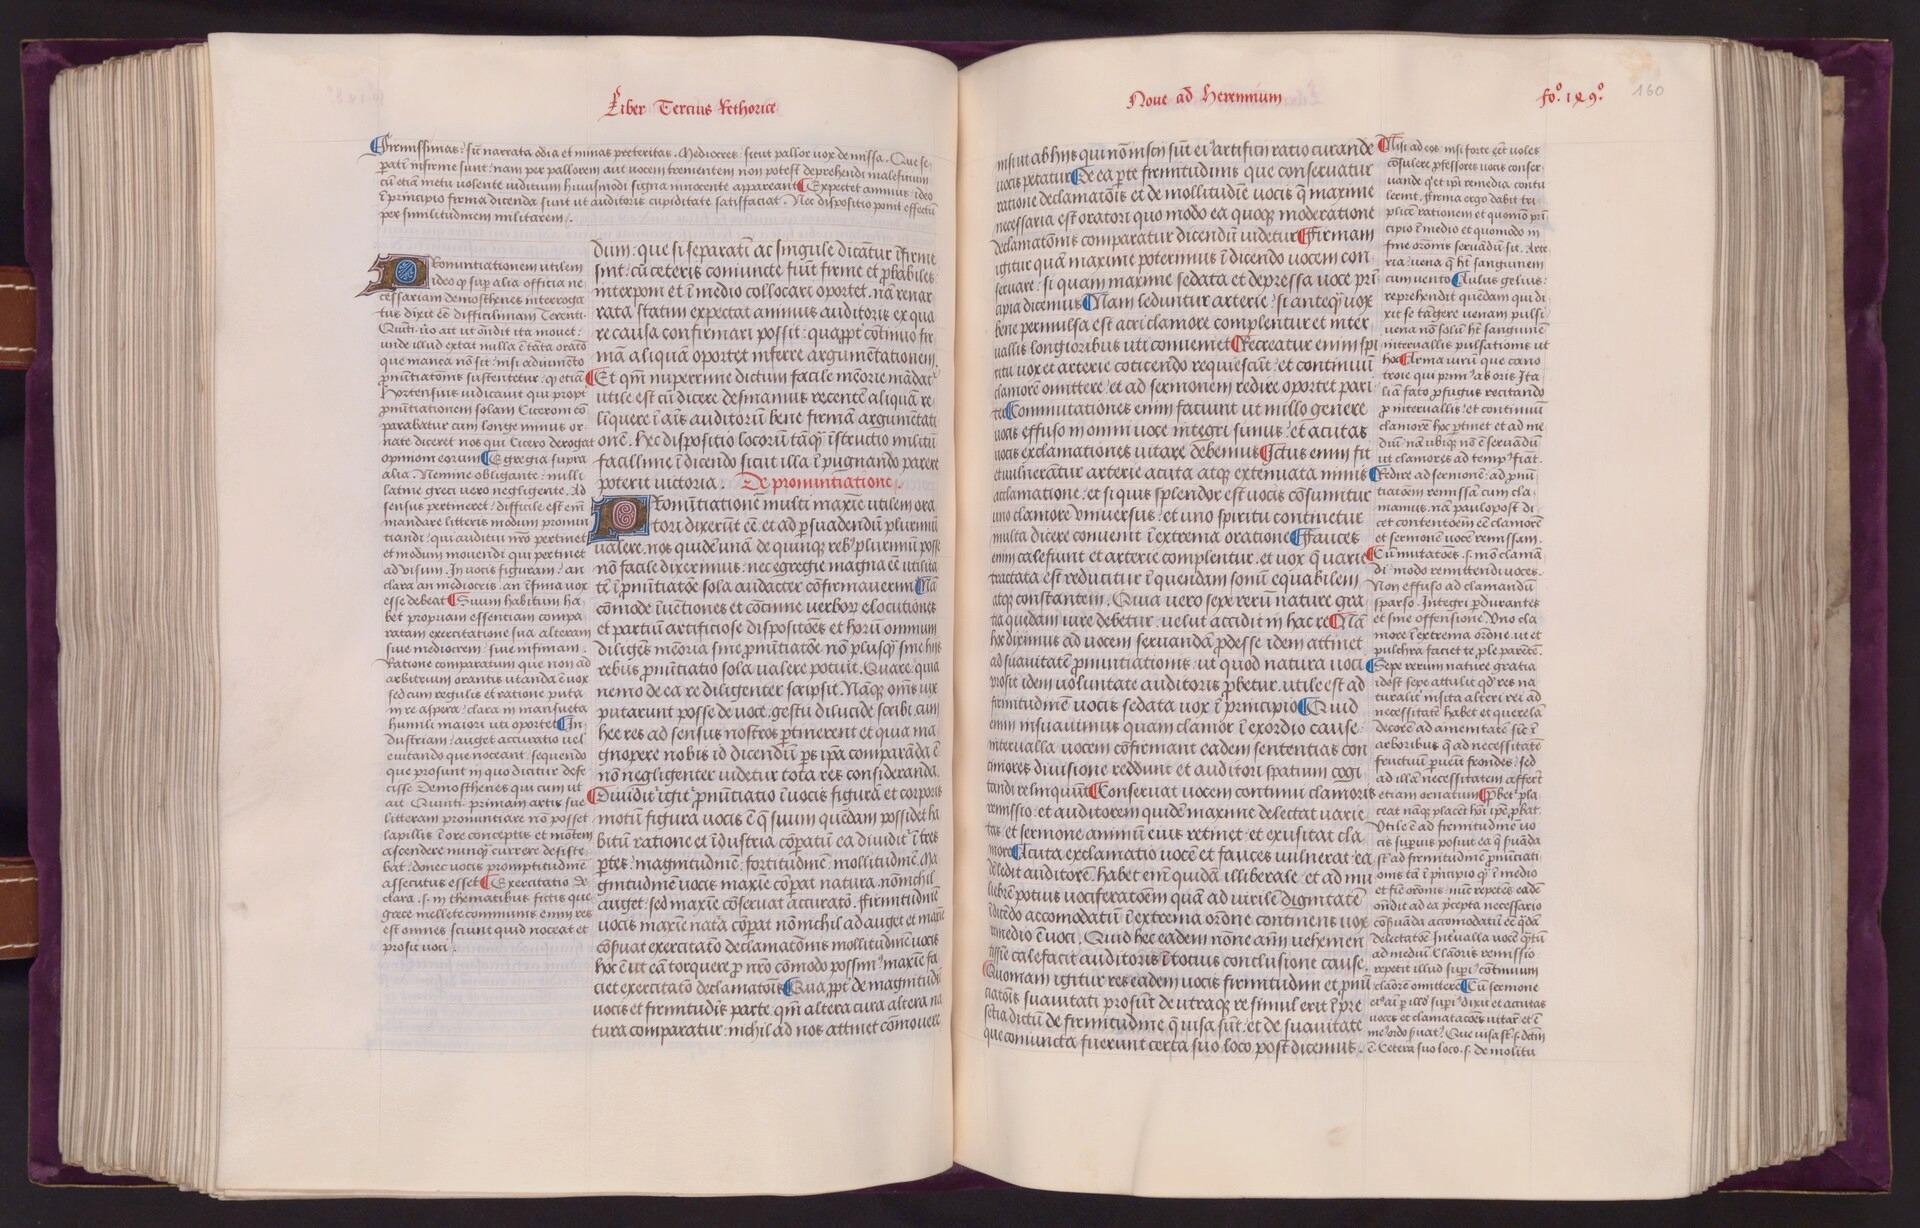 Liber Tercius Rethorice
Firmissimas: sūt narrata odia et minas preteritas. Mediocres: sicut pallor uox demissa. Que se
pati infirme sunt: nam per pallorem aut uocem trementem non potest deprehendi maleficium
cū etiā metu uolente iudicium huiusmodi signa innocente appareant Expectet animus: ideo
ī principio firma dicenda sunt ut auditoris cupiditate satisfaciat. Nec dispositio ponit effectū
per similitudinem militarem.
Pronuntiationem utilem
ideo qꝫ sup alia officia ne
cessariam demosthenes interroga
tus dixit eē difficilimam Terenti
unde illud extat nulla ē tāta orato
que manca nō sit: nisi adiumēto
ꝓnūtiatōnis sustentetur: qꝫ etiā
Hortensius iudicauit qui propt
ꝓnūtiationem solam Ciceroni cō
parabatur cum longe minus or
nate diceret nos qui Cicero derogat
opinioni eorum Egregia supra
alia. Nemine obligante: nulli
latine greci uero negligente. Ad
sensus pertineret: difficile est em̄
mandare litteris modum pronun
tiandi: qui auditui nr̄o pertinet
et modum mouendi qui pertinet
ad uisum. In uocis figuram: an
clara an mediocris. an ī fima uox
esse debeat Suum habitum ha
bet propriam essentiam compa
ratam exercitatione sua alteram
siue mediocrem: siue infimam.
Ratione comparatum que non ad
arbitrium orantis utanda ē uox
sed cum regulis et ratione puta
in re aspera: clara in mansueta
humili maiori uti oportet In
dustriam: auget accuratio uel
euitando que noceant: sequendo
que prosunt in quo dicitur defe
cisse Demosthenes qui cum ut
ait Quinti. primam artis sue
litteram pronuntiare nō posset
lapillis ī ore conceptis et mōtem
ascendere nunqꝫ currere desiste
bat: donec uocis promptitudinē
assecutus esset Exercitatio de
clara. s. in thematibus fictis que
grece mellete communis enim res
est omnes sciunt quid noceat et
prosit uoci.
dum: que si separati ac singule dicātur īfirme
sint: cū ceteris coniuncte fiūt firme et ꝓbabiles
interponi et ī medio collocari oportet. nā re nar
rata statim expectat animus auditoris ex qua
re causa confirmari possit: quaꝓpt cōtinuo fir
mā aliquā oportet inferre argumētationem.
Et qm̄ nuperrime dictum facile mēorie mādat
utile est cū dicere desinamus recentē aliquā re
linquere ī aīs auditorū bene firmā argumētati
onē. hec dispositio locorū tāqꝫ īstructio militū
facillime ī dicendo sicut illa ī pugnando parere
poterit uictoria. De pronuntiatione.
Pronūtiationē multi maxīe utilem ora
tori dixerūt eē. et ad ꝑsuadendū plurimū
ualere. nos quidē unā de quinqꝫ rebꝫ plurimū posse
nō facile dixerimus: nec egregie magnā eē utilita
tē ī ꝓnūtiatōe sola audacter cōfirmauerim Nā
cōmode īuētiones et cōcinne uerborꝫ elocutiones
et partiū artificiose dispositōes et horū omnium
diligēs mēoria sine ꝓnūtiatōe nō plusqꝫ sine his
rebus ꝓnūtiatio sola ualere potuit. Quare quia
nemo de ea re diligenter scripsit. Nāqꝫ oms̄ uix
putarunt posse de uoce. gestu dilucide scribi. cum
hee res ad sensus nostros ꝑtinerent et quia ma
gnopere nobis id dicendū ꝑs ip̄a comparāda ē
nō negligenter uidetur tota res consideranda.
Diuidit igit ꝓnūtiatio ī uocis figurā et corporis
motū. figura uocis ē q̄ suum quēdam possidet ha
bitū ratione et īdustria cōpatū ea diuidit ī tres
ꝑtes: magnitudinē: fortitudinē: mollitudinē. Ma
gnitudinē uocis maxīe cōpat natura. nōnichil
auget: sed maxīe cōseruat accuratō. ffirmitudinē
uocis maxīe natā cōpat nōnichil ad auget et maxīe
cōseruat exercitatō declamatōnis mollitudinē uocis
hoc ē ut eā torquere ꝓ nr̄o cōmodo possimꝫ maxīe fa
ciet exercitatō declamatōis Quaꝓpt de magnitudī
uocis et firmitudīs parte. qm̄ altera cura altera na
tura comparatur: nichil ad nos attinet cōmouere
Noue ad Herennium
fo. 189.
160
nisi ut ab hijs qui nō inscij sūt ei artificij ratio curande
uocis petatur De ea ꝑte firmitudinis que conseruatur
ratione declamatōis et de mollitudine uocis q̄ maxime
necessaria est oratori quo modo ea quoqꝫ moderatione
declamatōnis comparatur dicendū uidetur Firmam
igitur quā maxime poterimus ī dicendo uocem con
seruare: si quam maxime sedata et depressa uoce prī
cipia dicemus Nam leduntur arterie: si anteqꝫ uox
bene permulsa est acri clamore complentur et inter
uallis longioribus uti conueniet Recreatur enim spi
ritu uox et arterie coticendo requiescūt: et continuū
clamorē omittere et ad sermonem redire oportet pari
ter Commutationes enim faciunt ut nullo genere
uocis effuso in omni uoce integri simus: et acutas
uocis exclamationes uitare debemus Ictus enim fit
et uulnerantur arterie acuta atqꝫ extenuata nimis
acclamatione: et si quis splendor est uocis cōsumitur
uno clamore vniuersus: et uno spiritu continetur
multa dicere conuenit ī extrema oratione Fauces
enim calefiunt et arterie complentur. et uox q̄ uarie
tractata est reducitur ī quendam sonū equabilem
atqꝫ constantem. Quia uero sepe rerū nature gra
tia quedam iure debetur: uelut accidit in hac re Nā
hec diximus ad uocem seruandā ꝓdesse idem attinet
ad suauitatē ꝓnuntiationis: ut quod natura uoci
prosit idem uoluntate auditoris ꝓbetur. utile est ad
firmitudinē uocis sedata uox ī principio Quid
enim insuauius quam clamor ī exordio cause.
interualla uocem cōfirmant eadem sententias con
cinniores diuisione reddunt et auditori spatium cogi
tandi relinquūt Conseruat uocem continui clamoris
remissio: et auditorem quidē maxime delectat uarie
tas et sermone animū eius retinet: et exusitat cla
more Acuta exclamatio uocē et fauces uulnerat: ea
dē ledit auditorē. habet em̄ quidā illiberale et ad mu
liebrē potius uociferatōem quā ad uirilē dignitatē
ī dicēdo accomodatū ī extrema orōne continens uox
remedio ē uoci. Quid hec eadem nōne aīm uehemen
tissīe calefacit auditoris ī totius conclusione cause.
Quoniam igitur res eadem uocis firmitudini et ꝓnū
ciatōis suauitati prosūt de utraqꝫ re simul erit ī pre
sētia dictū de firmitudine q̄ uisa sūt: et de suauitate
que coniuncta fuerunt certa suo loco post dicemus.
Nisi ad eos nisi forte eēt uoles
cōsulere ꝓfessores uocis conser
uande qꝫ et ip̄i remedia contu
lerint. firma ergo dabit tri
plicē rationem et quomō prī
cipio ī medio et quomodo in
fine orōnis seruādū sit. Arte
ria: uena q̄ ht̄ sanguinem
cum uento Aulus gelius:
reprehendit quēdam qui di
xit se tāgere uenam pulsi
uena nō solū ht̄ sanguinē
interuallis pulsationis ut
hoc Arma uirū que cano
troie qui primꝫ ab oris Ita
liā fato ꝓfugus recitando
ꝓ interuallis: et continuū
clamorē hoc ꝑtinet et ad me
diū nā ubiqꝫ nō ē seruādū
ut clamores ad tempꝫ fiāt.
Redire ad sermonē: ad ꝓnū
tiatōem remissā cum cla
mamus. nā paulo post di
cet contentōem eē clamorē
et sermonē uocē remissam.
Cū mutatōes. s. mō clamā
di modo remittendi uoces.
Non effuso ad clamandū
sparso. Integri ꝑdurantes
et sine offensione. Vno cla
more ī extrema orōne. ut et
pulchra faciet te ꝓle parētē.
Sepe rerum nature gratia
idest sepe attulit qd̓ res na
turalit insita alteri rei ad
necessitatē habet et querelā
decorē ad amenitatē sic ī
arboribus q̄ ad necessitatē
fructuū ꝑueniūt frondes: sed
ad illā necessitatem affert
etiam ornatum Pbet pla
ceat nāqꝫ placēt hōi ip̄e ꝓbat.
Vtile ē ad firmitudinē uo
cis superius posuit ea q̄ seruāda
sūt ad firmitudinē ꝓnūciati
onis tā ī pricipio qꝫ ī medio
et fīe orōnis: nūc repetēs eadē
ondit ad ea pcepta necessario
cōseruāda accomodatū eē q̄dā
delectatōē Interualla uocē qꝫtū
ad mediū. Claōris remissio
repetit illud supi cōtinuum
claōrē omittere Cū sermone
uoces et clamatatōes uitat et ē
ē. Cetera suo loco. s. de mollitu